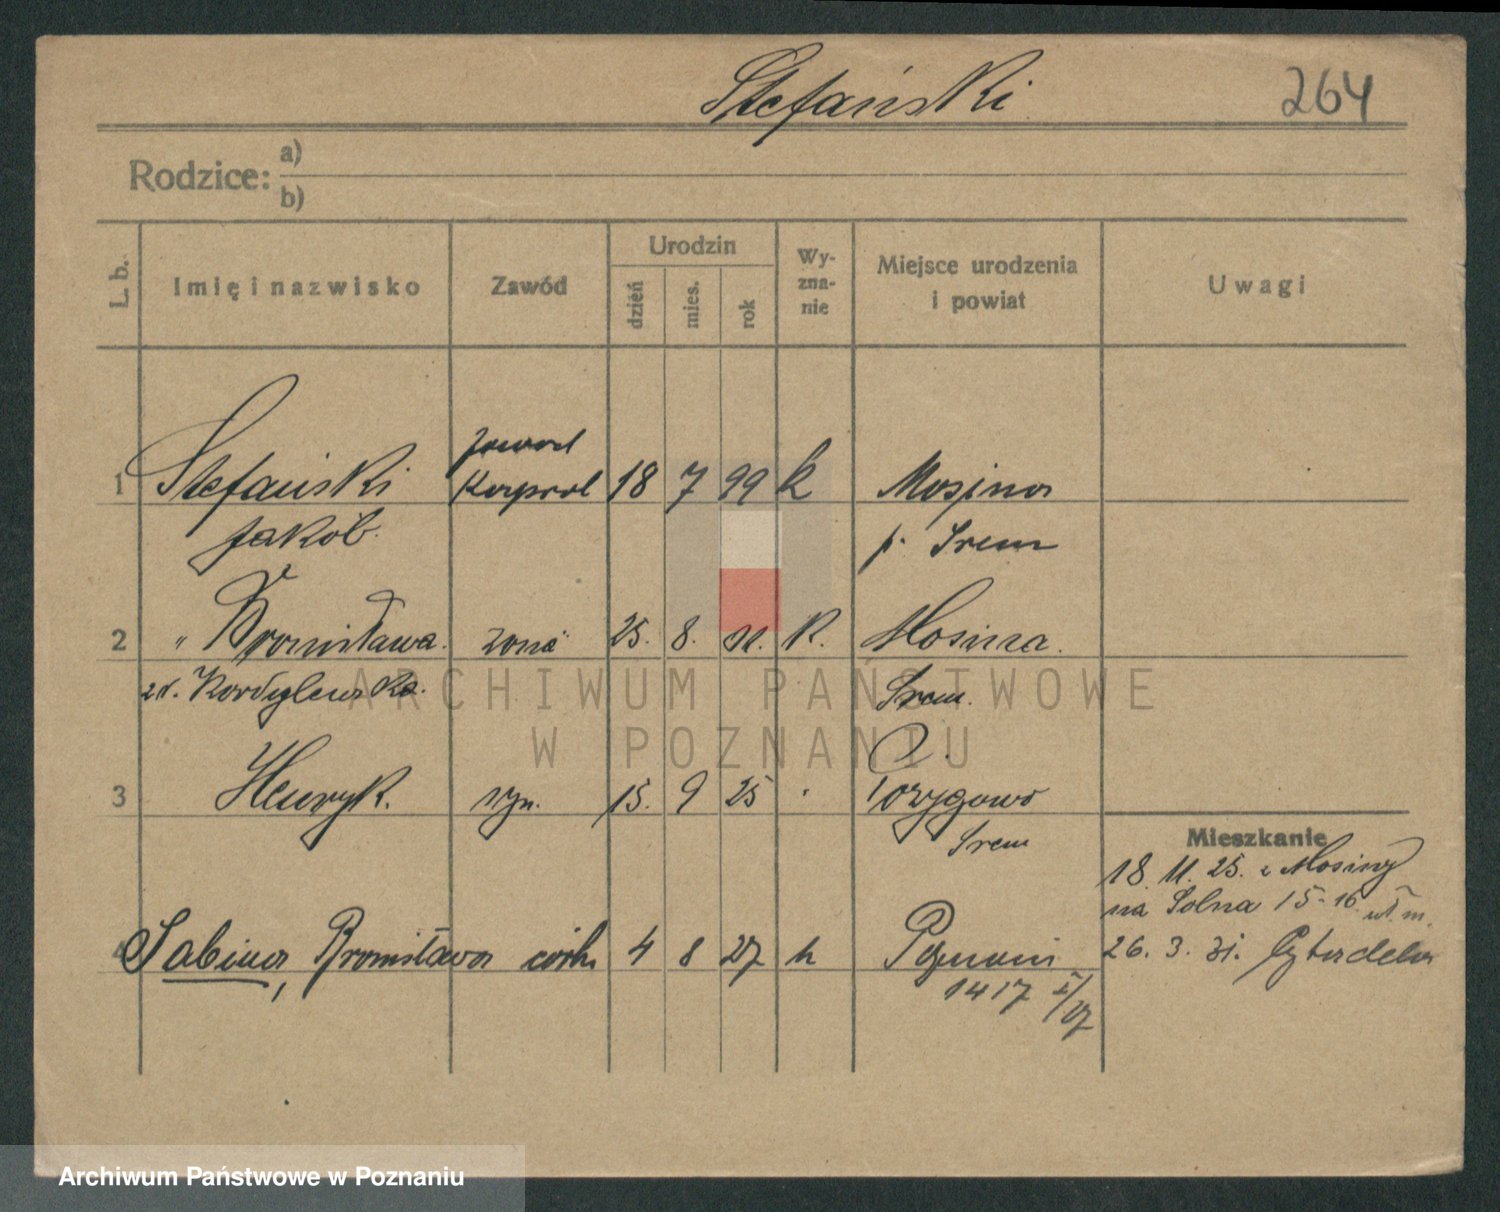 Stefański
264
Rodzice:
a)
b)
L. b.
Imię i nazwisko
Zawód
Urodzin
dzień
mies.
rok
Wy-
zna-
nie
Miejsce urodzenia
i powiat
Uwagi
zawod
1 Stefański Kapral 18 7 99 k Mosina
Jakób p. Srem
2 " Bronisława żona 25. 8. K. Mosina.
zd. Kordylewska. Srem.
3 Henryk. syn. 15. 9 25 Pożegowo
Srem
Mieszkanie
18. 11. 25. z Mosiny
na Solna 15-16
4 Sabina, Bronisława córk. 4 8 27 k Poznani
1417 I/27
26. 3. 31. Cytadela
ARCHIWUM PAŃSTWOWE
W POZNANIU
Archiwum Państwowe w Poznaniu